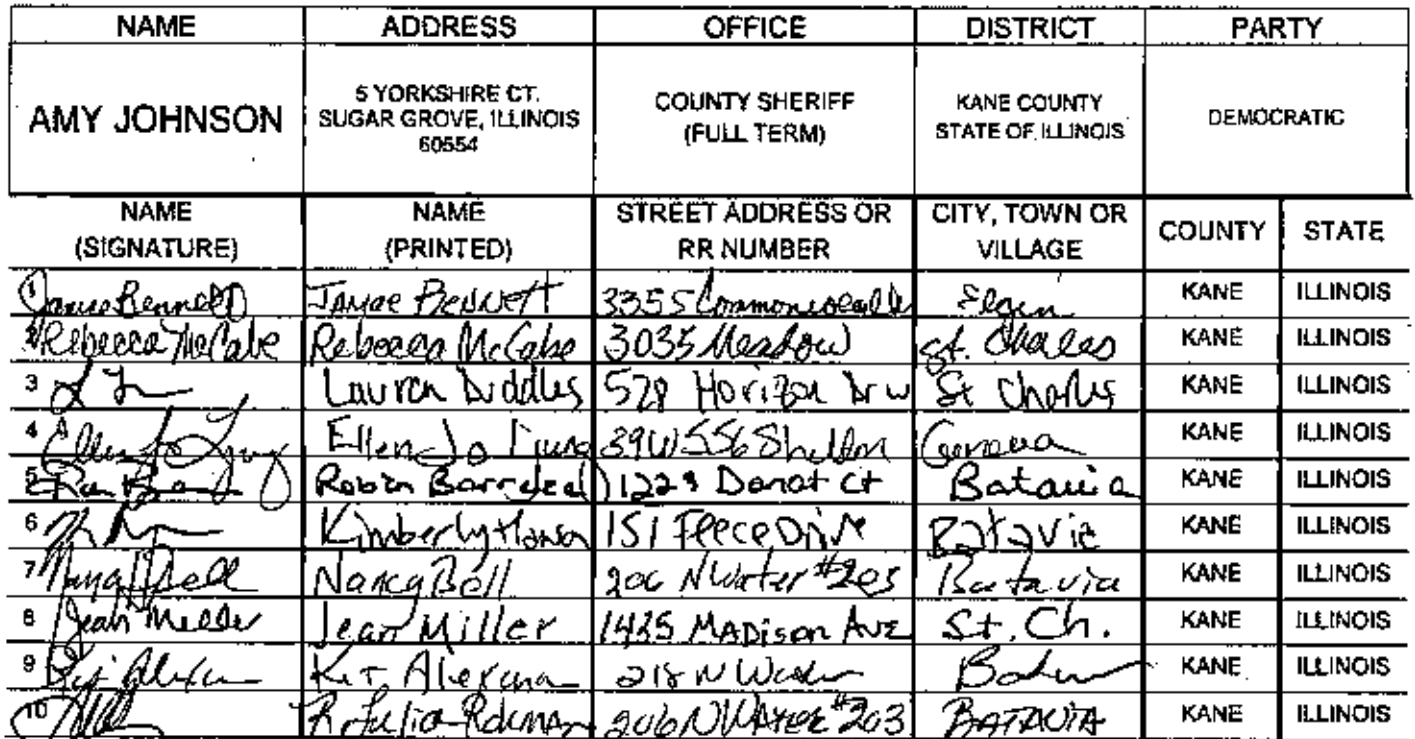 NAME ADDRESS OFFICE DISTRICT PARTY
AMY JOHNSON
5 YORKSHIRE CT.
SUGAR GROVE, ILLINOIS
60554
COUNTY SHERIFF
(FULL TERM)
KANE COUNTY
STATE OF ILLINOIS
DEMOCRATIC
NAME
(SIGNATURE)
NAME
(PRINTED)
STREET ADDRESS OR
RR NUMBER
CITY, TOWN OR
VILLAGE
COUNTY STATE
1 Bennett 3355 Elgin KANE ILLINOIS
2 Rebecca McCabe Rebecca McCabe 3035 Meadow St. Charles KANE ILLINOIS
3 Lauren 528 Horizon Dr W St Charles KANE ILLINOIS
4 Ellen Jo Ellen Jo 39W556 Geneva KANE ILLINOIS
5 Robin 1223 Ct Batavia KANE ILLINOIS
6 Kimberly 151 Fleece Drive Batavia KANE ILLINOIS
7 Nancy Bell Nancy Bell 206 N Water #203 Batavia KANE ILLINOIS
8 Jean Miller Jean Miller 1425 MADison Ave St. Ch. KANE ILLINOIS
9 Kit 218 N KANE ILLINOIS
10 R Julia 206 N WATER #203 BATAVIA KANE ILLINOIS